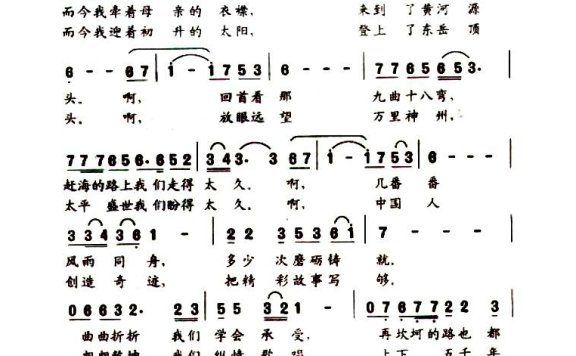 而今我牵着母 亲的衣襟, 来到 了黄河 源
而今我迎着初 升的太阳, 登上 了东岳 顶
6 - - 6 7 | 1 - 1 1 7 5 3 | 6 - - - | 7 7 6 5 6 5 3. |
头。 啊, 回首看 那 九曲十八弯,
头。 啊, 放眼远 望 万里神 州,
7 7 7 6 5 6. 6 5 2 | 3 4 3. 3. 6 7 | 1 - 1 1 7 5 3 | 6 - - -
赶海的路上我们走得 太 久。 啊, 几番 番
太平 盛世我们盼得 太 久。 啊, 中国 人
3 3 4 3 6 1 - | 2 2 3 5 3 6 1 | 7 - - -
风雨 同 舟, 多少 次磨砺铸 就。
创造 奇 迹, 把精 彩故事写 够。
0 6 6 3 2. 2 3 | 5 5 3 2 1 - | 0 7 6 7 7 2 2 3
曲曲折折 我们 学会 承受, 再坎坷的路也 都
上下 五千 年